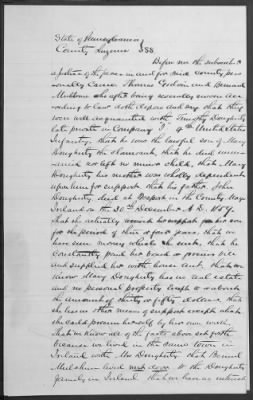 State of Pennsylvania
County Luzerne } SS.
Before me the subscriber
a justice of the peace in and for said county per-
sonally came Thomas and Bernard
who after being severally sworn accor-
ding to law doth depose and say that they
were well acquainted with Timothy Dougherty
late private in Company 4th United States
Infantry, that he was the lawful son of Mary
Dougherty the claimant, that he died unmar-
ried & left no minor child, that Mary
Dougherty his mother was wholly dependent
upon him for support, that his father John
Dougherty died at in the County Mayo
Ireland on the 30th December A. D. 1847,
that she actually received her support from her son
for the period of three or four years, that we
have seen money which he sent, that he
constantly paid her board or house rent
and supplied her with, that we
know Mary Dougherty has no real estate
and no personal property except
the amount of thirty or fifty dollars, that
she has no other means of support except what
she could procure herself by her own work,
that we know all of the facts above set forth
because we lived in the same town in
Ireland with Mrs Dougherty, that
lived next door to the Dougherty
family in Ireland that we have no interest